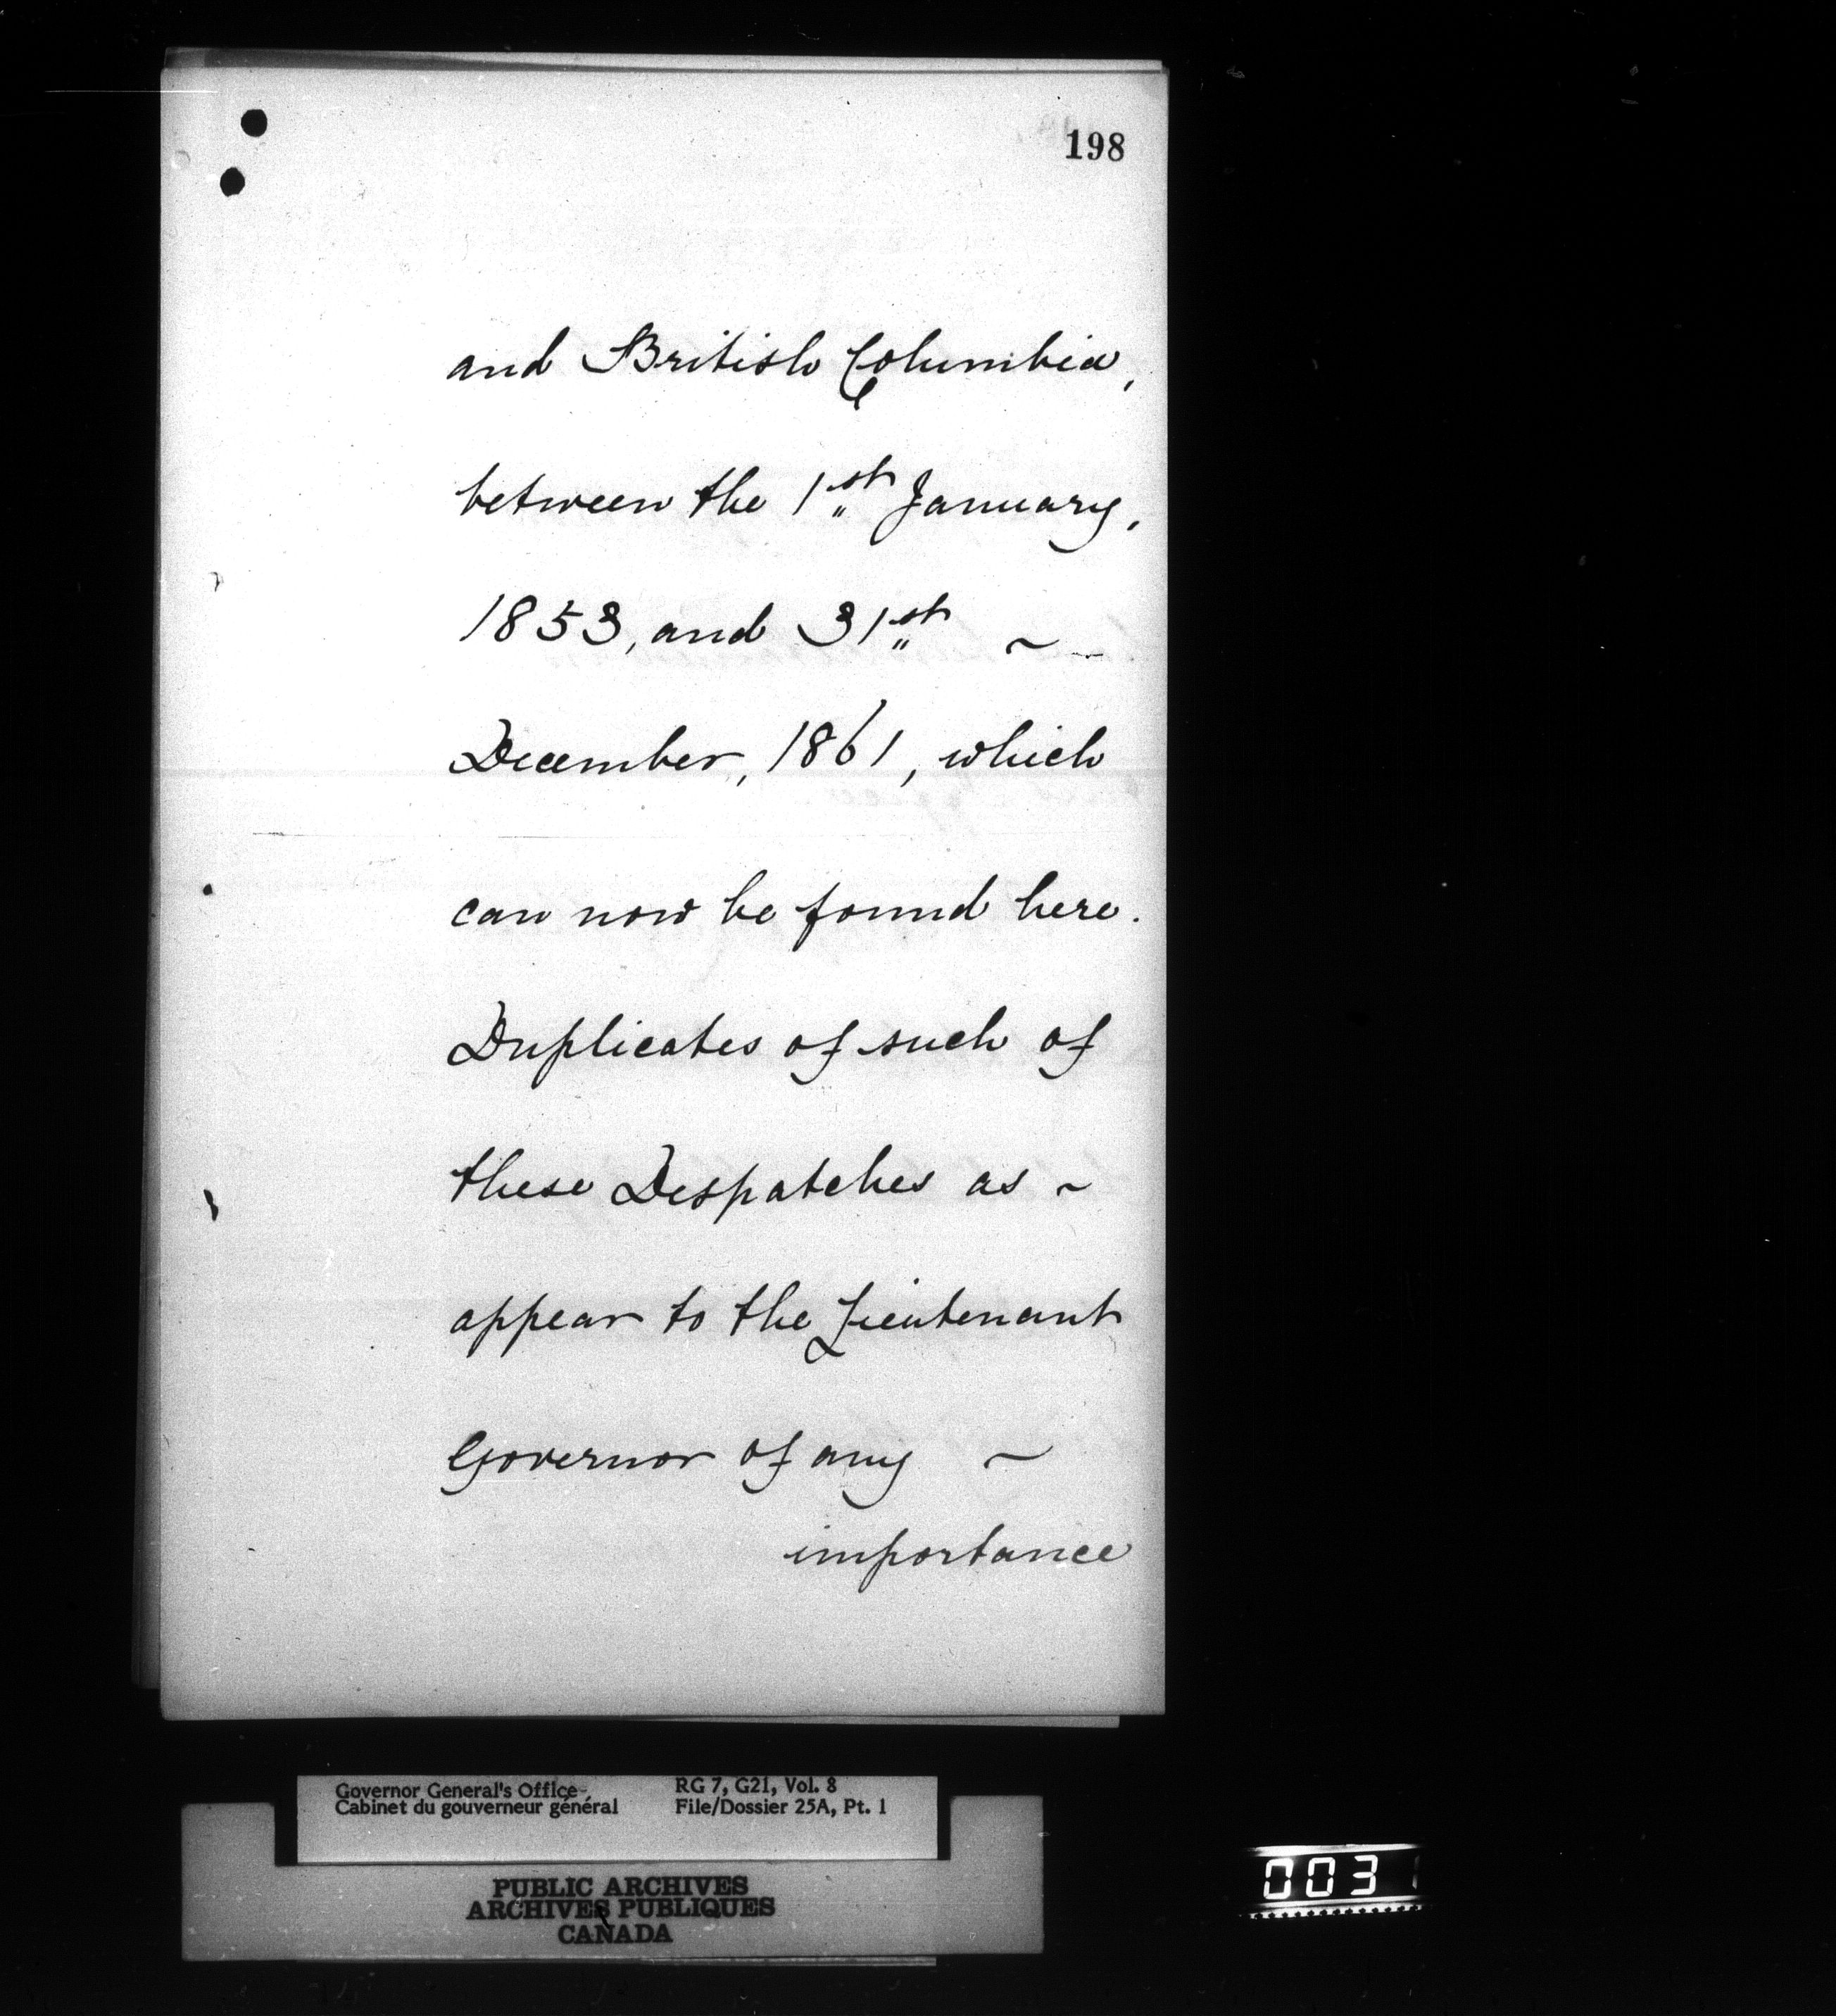 198
and British Columbia,
between the 1st January,
1853, and 31st ~
December, 1861, which
can now be found here.
Duplicates of such of
these Despatches as ~
appear to the Lieutenant
Governor of any ~
importance
Governor General's Office
Cabinet du gouverneur général
RG 7, G21, Vol. 8
File/Dossier 25A, Pt. 1
PUBLIC ARCHIVES
ARCHIVES PUBLIQUES
CANADA
0031